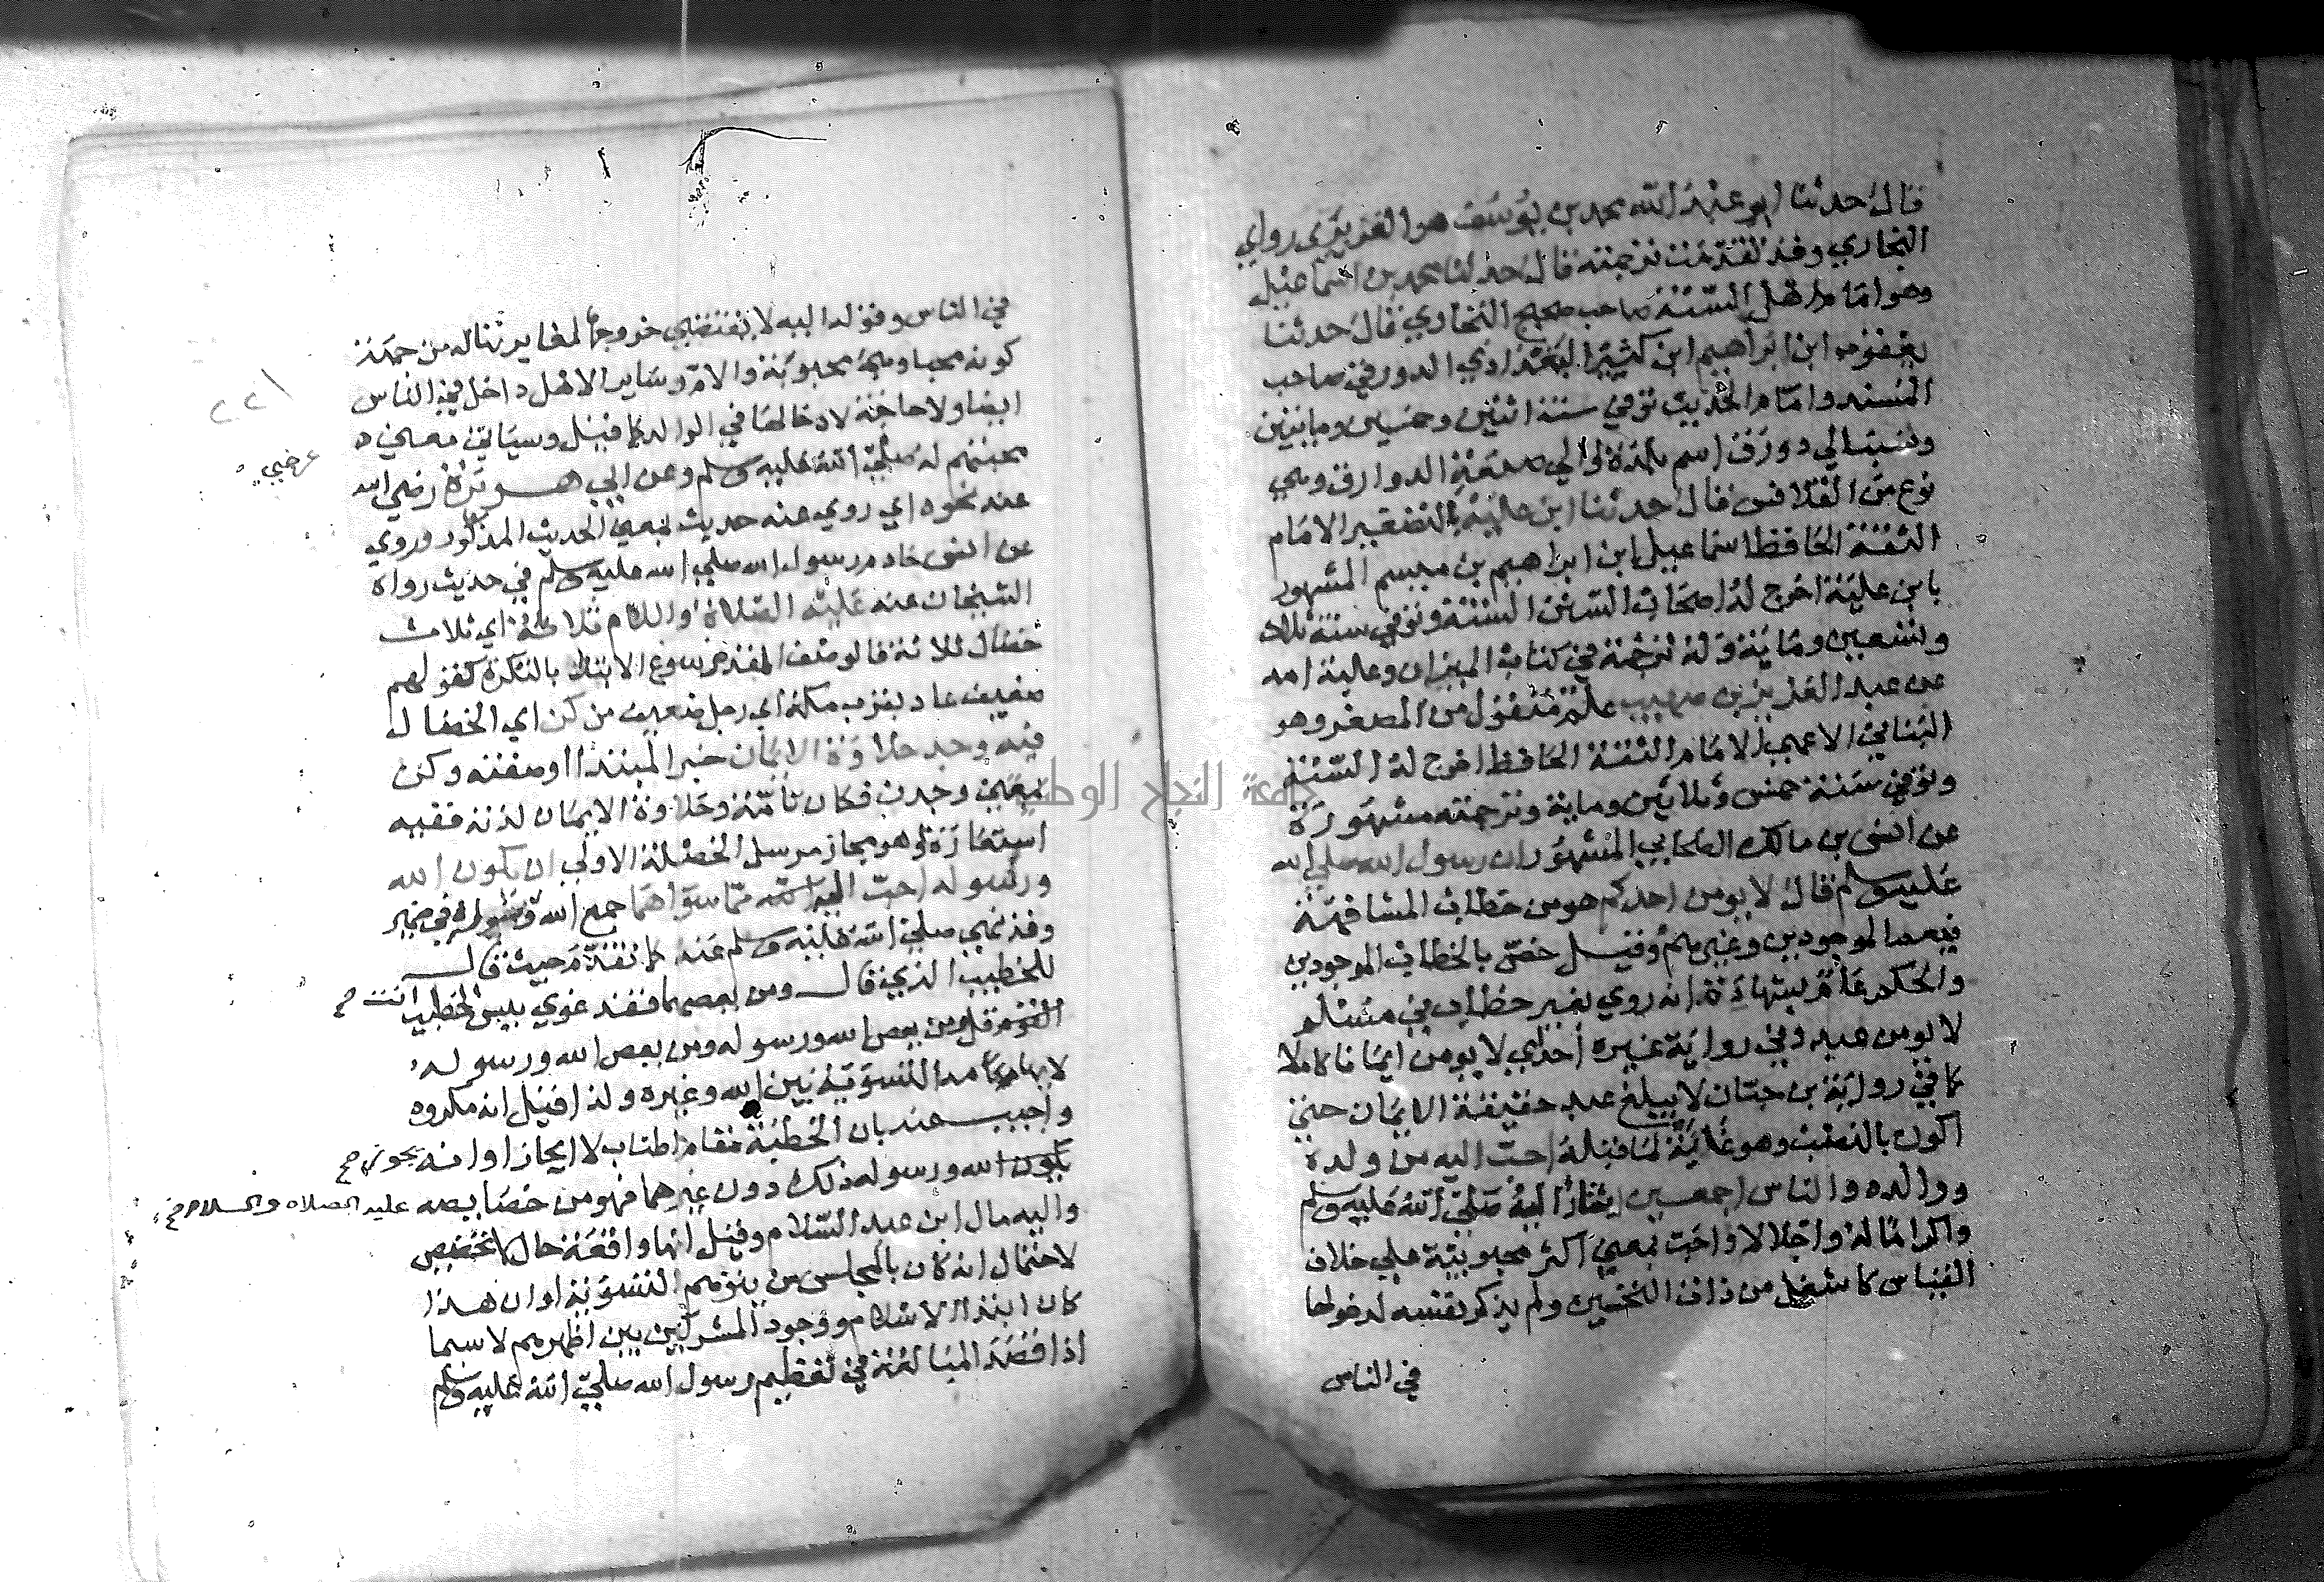 قال حدثنا ابو عبد الله محمد بن يوسف هو الفربري راوي
البخاري وقد تقدمت ترجمته قال حدثنا محمد بن اسماعيل
وهو امام اهل السنة صاحب صحيح البخاري قال حدثنا
يعقوب ابن ابراهيم ابن كثير البغدادي الدورقي صاحب
المسند وامام الحديث توفي سنة اثنين وخمسين ومايتين
ونسبته الي دورق اسم بلدة او الي صنعة الدوارق وهي
نوع من القلانس قال حدثنا ابن علية بالتصغير الامام
الثقة الحافظ اسماعيل ابن ابراهيم بن مقسم المشهور
بابن علية اخرج له اصحاب السنن الستة وتوفي سنة ثلاث
وتسعين وماية وله ترجمة في كتاب الميزان وعلية امه
عن عبد العزيز بن صهيب علم منقول من المصغر وهو
البناني الاعمى الامام الثقة الحافظ اخرج له الستة
وتوفي سنة خمس وثلاثين وماية وترجمته مشهورة
عن انس بن مالك الصحابي المشهور ان رسول الله صلي الله
عليه وسلم قال لا يومن احدكم هو من خطاب المشافهة
فيعم الموجودين وغيرهم وقيل خص بالخطاب الموجودين
والحكم عام بشهادة انه روي بغير خطاب في مسلم
لا يومن عبد وفي رواية غيره احد اي لا يومن ايمانا كاملا
كما في رواية بن حبان لا يبلغ عبد حقيقة الايمان حتي
اكون بالنصب وهو غاية لما قبله احب اليه من ولده
ووالده والناس اجمعين ايثارا له صلي الله عليه وسلم
واكراما له واجلالا واحب بمعني اكثر محبوبية علي خلاف
القياس كاشغل من ذات النحيين ولم يذكر نفسه لدخولها
في الناس
٢٢١
في الناس وقوله اليه لا يقتضي خروجها لمغايرتها له من جهة
كونه محبا وهي محبوبة والام وساير الاهل داخل في الناس
ايضا ولا حاجة لادخالها في الوالد كما قيل وسياتي معني
محبتهم له صلي الله عليه وسلم وعن ابي هريرة رضي الله
عنه نحوه اي روي عنه حديث بمعني الحديث المذكور وروي
عن انس خادم رسول الله صلي الله عليه وسلم في حديث رواه
الشيخان عنه عليه الصلاة والسلام ثلاثة اي ثلاث
خصال ثلاثة فالوصف المقدر سوغ الابتدا بالنكرة كقولهم
ضعيف عاد بقرملة اي رجل ضعيف من كن اي الخصال
فيه وجد حلاوة الايمان خبر المبتدا او صفته وكن
بمعني وجدن فكان تامة وحلاوة الايمان لذته ففيه
استعارة او هو مجاز مرسل الخصلة الاولي ان يكون الله
ورسوله احب اليه مما سواهما جمع الله ورسوله في ضمير
وقد نهي صلي الله عليه وسلم عنه كما تقدم حيث قال
للخطيب الذي قال ومن يعصهما فقد غوي بيس الخطيب انت صح
القوم قل ومن يعص الله ورسوله ومن يعص الله ورسوله
لايهامها التسوية بين الله وغيره ولذا قيل انه مكروه
واجيب عنه بان الخطبة مقام اطناب لا ايجاز او انه يجوز صح
يكون الله ورسوله ذلك دون غيرهما فهو من خصايصه عليه الصلاه والسلام صح
واليه مال ابن عبد السلام وقيل انها واقعة حال لا تخصيص
لاحتمال انه كان بالمجلس من يتوهم التسوية او ان هذا
كان ابتدا الاسلام ووجود المشركين بين اظهرهم لا سيما
اذا قصد المبالغة في تعظيم رسول الله صلي الله عليه وسلم
جامعة النجاح الوطنية